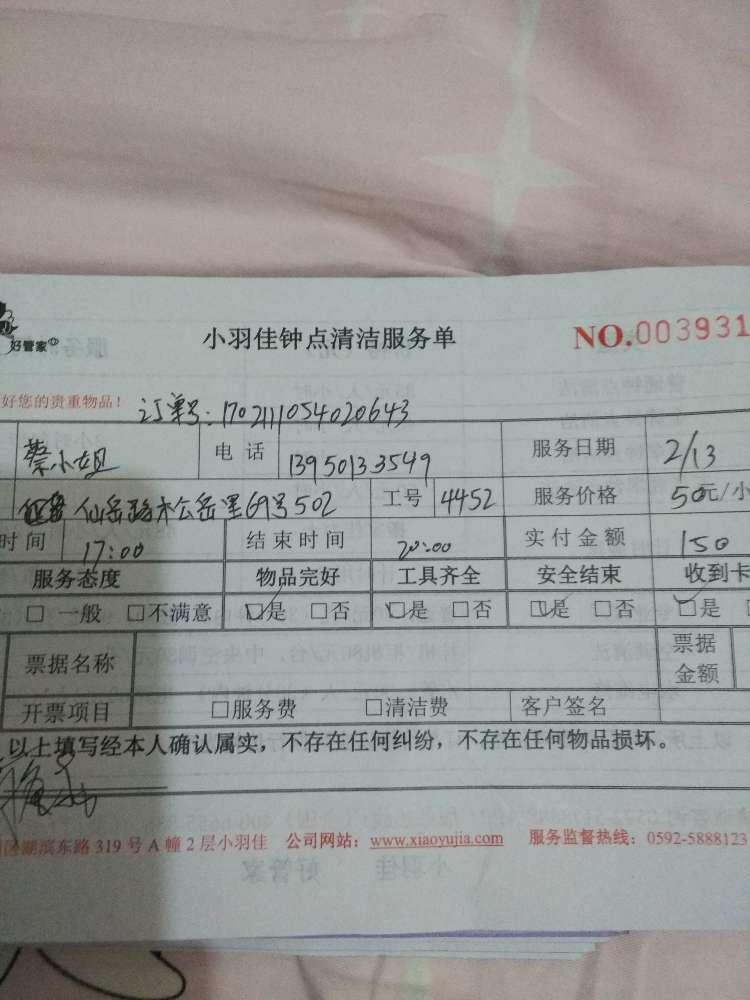 好管家
小羽佳钟点清洁服务单
NO.003931
好您的贵重物品！ 订单号：170211105402064​3
蔡小姐 电话 13950133549 服务日期 2/13
仙岳路松岳里69号502 工号 4452 服务价格 50元/小
时间 17:00 结束时间 20:00 实付金额 150
服务态度 物品完好 工具齐全 安全结束 收到卡
□一般 □不满意 ☑是 □否 ☑是 □否 ☑是 □否 ☑是
票据名称 票据金额
开票项目 □服务费 □清洁费 客户签名
以上填写经本人确认属实，不存在任何纠纷，不存在任何物品损坏。
区湖滨东路319号A幢2层小羽佳 公司网站：www.xiaoyujia.com 服务监督热线：0592-5888123